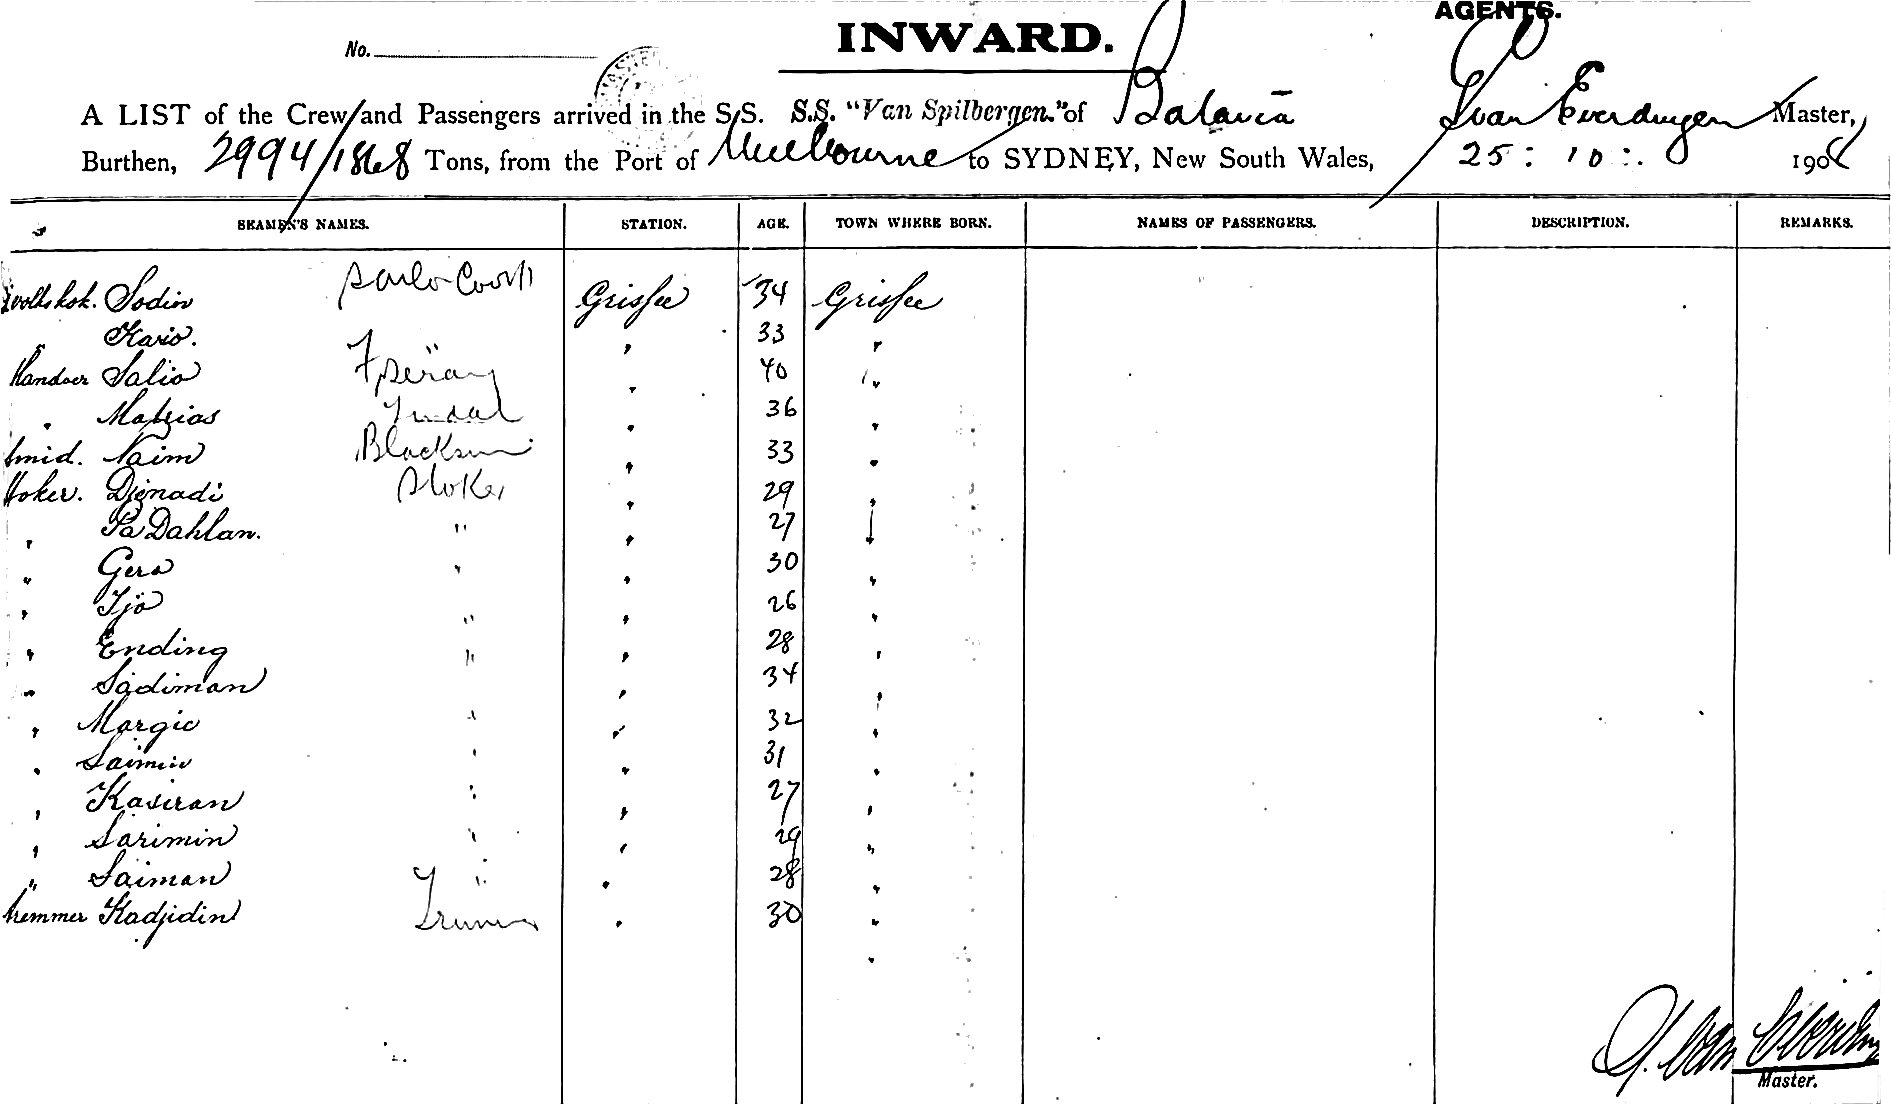 AGENTS.
INWARD.
No.
A LIST of the Crew and Passengers arrived in the S.S. S.S. "Van Spilbergen." of Batavia van Everdingen Master,
Burthen, 2994/1868 Tons, from the Port of Melbourne to SYDNEY, New South Wales, 25 : 10 : 1908
SEAMEN'S NAMES. STATION. AGE. TOWN WHERE BORN. NAMES OF PASSENGERS. DESCRIPTION. REMARKS.
volkskok. Sodin Sailor Cook Grissee 34 Grissee
" Kario. " " 33 "
Mandoer Salio Serang " 40 "
" Matrias Tindal " 36 "
Smid. Naim Blacksm " 33 "
Stoker. Djenadi Stoker " 29 "
" Pa Dahlan. " " 27 "
" Gera " " 30 "
" Tjo " " 26 "
" Ending " " 28 "
" Sadiman " 34 "
" Margie " " 32 "
" Saimin " " 31 "
" Kasiran " " 27 "
" Sarimin " " 29 "
" Saiman " " 28 "
tremmer Kadjidin Trimmer " 30 "
"
van
Master.